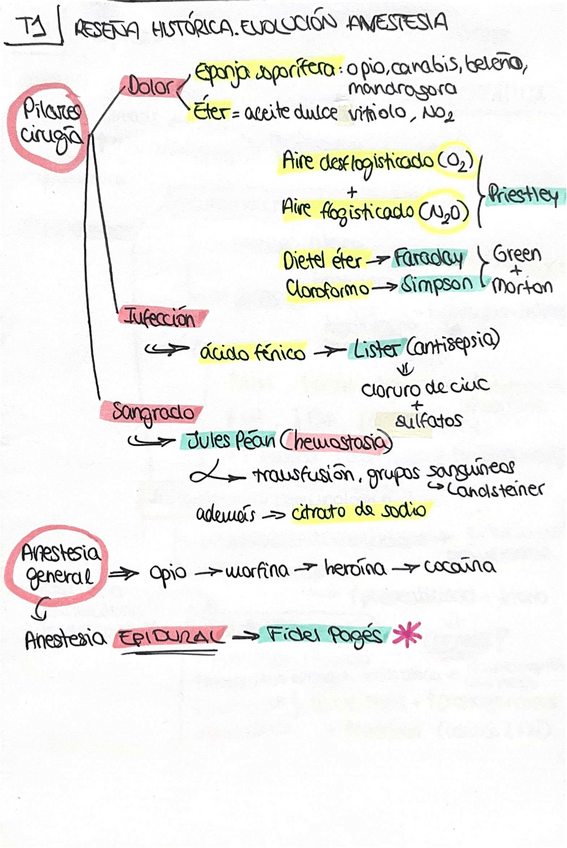 T1 RESEÑA HISTÓRICA. EVOLUCIÓN ANESTESIA
Pilares
cirugía
Dolor
Esponja soporífera: opio, canabis, beleño,
mandragora
Éter = aceite dulce vitriolo, NO2
Aire desflogisticado (O2)
+
Aire flogisticado (N2O)
Priestley
Dietel éter → Faraday
Cloroformo → Simpson
Green
+
Morton
Infección
↪ ácido fénico → Lister (antisepsia)
⇓
cloruro de cinc
+
sulfatos
Sangrado
↪ Jules Péan (hemostasia)
→ transfusión, grupos sanguíneos
↪ Landsteiner
además → citrato de sodio
Anestesia
general ⇒ opio → morfina → heroína → cocaína
Anestesia EPIDURAL → Fidel Pagés *